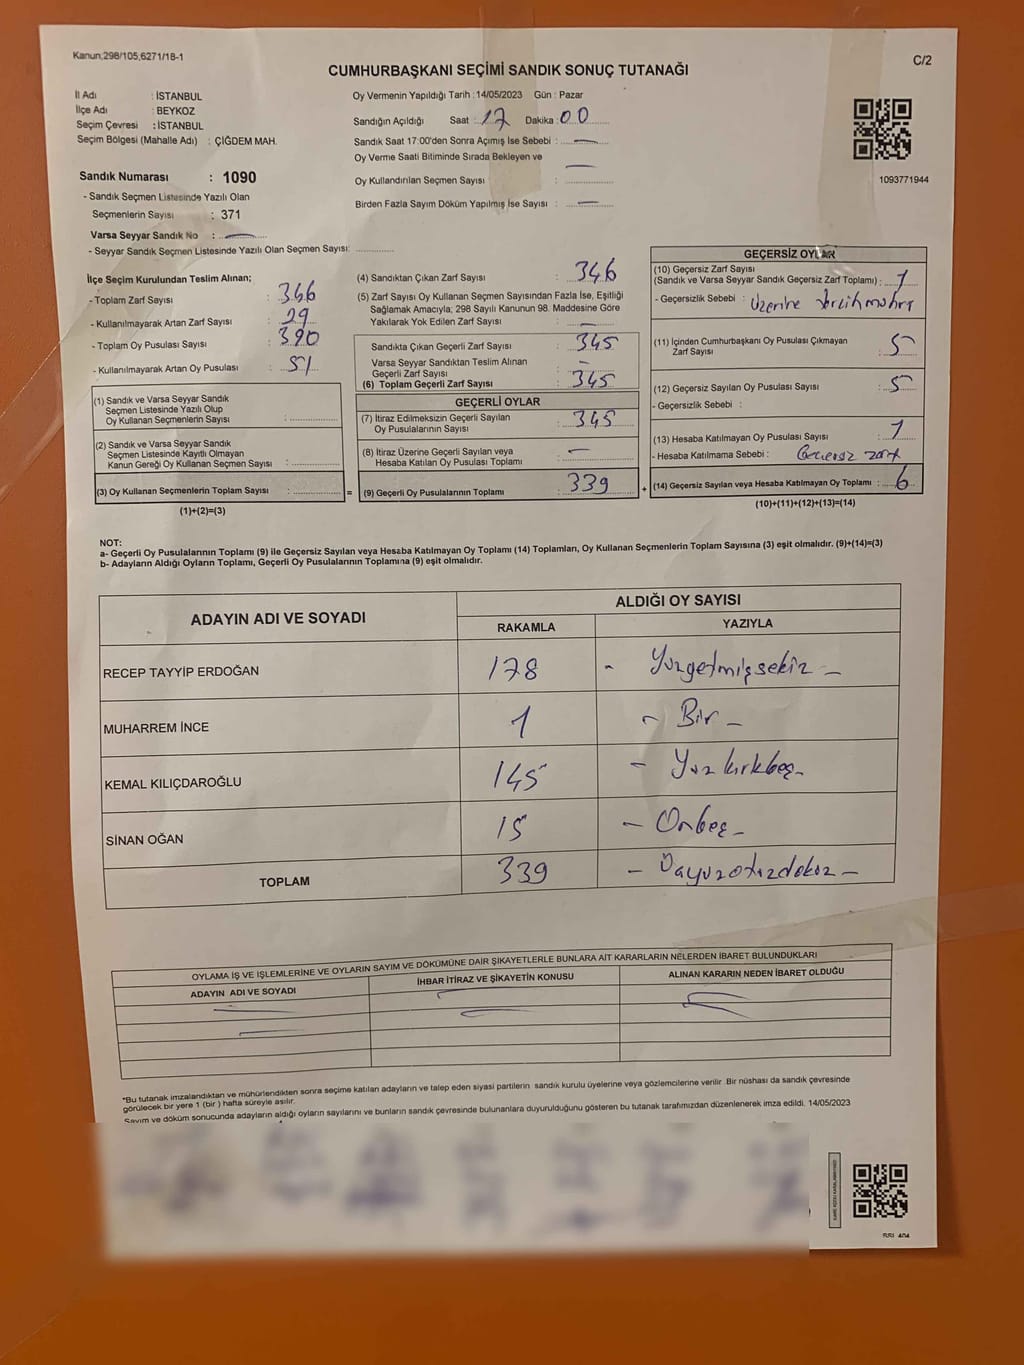 Kanun,298/105,6271/18-1
C/2
CUMHURBAŞKANI SEÇİMİ SANDIK SONUÇ TUTANAĞI
İl Adı : İSTANBUL
İlçe Adı : BEYKOZ
Seçim Çevresi : İSTANBUL
Seçim Bölgesi (Mahalle Adı) : ÇİĞDEM MAH.
Sandık Numarası : 1090
- Sandık Seçmen Listesinde Yazılı Olan
Seçmenlerin Sayısı : 371
Varsa Seyyar Sandık No :
- Seyyar Sandık Seçmen Listesinde Yazılı Olan Seçmen Sayısı:
Oy Vermenin Yapıldığı Tarih : 14/05/2023 Gün : Pazar
Sandığın Açıldığı Saat : 17 Dakika : 00
Sandık Saat 17:00'den Sonra Açımış İse Sebebi :
Oy Verme Saati Bitiminde Sırada Bekleyen ve
Oy Kullandırılan Seçmen Sayısı :
Birden Fazla Sayım Döküm Yapılmış İse Sayısı :
1093771944
İlçe Seçim Kurulundan Teslim Alınan;
- Toplam Zarf Sayısı : 366
- Kullanılmayarak Artan Zarf Sayısı : 29
- Toplam Oy Pusulası Sayısı : 390
- Kullanılmayarak Artan Oy Pusulası : 51
(1) Sandık ve Varsa Seyyar Sandık
Seçmen Listesinde Yazılı Olup
Oy Kullanan Seçmenlerin Sayısı :
(2) Sandık ve Varsa Seyyar Sandık
Seçmen Listesinde Kayıtlı Olmayan
Kanun Gereği Oy Kullanan Seçmen Sayısı :
(3) Oy Kullanan Seçmenlerin Toplam Sayısı : =
(1)+(2)=(3)
(4) Sandıktan Çıkan Zarf Sayısı : 346
(5) Zarf Sayısı Oy Kullanan Seçmen Sayısından Fazla İse, Eşitliği
Sağlamak Amacıyla; 298 Sayılı Kanunun 98. Maddesine Göre
Yakılarak Yok Edilen Zarf Sayısı :
Sandıkta Çıkan Geçerli Zarf Sayısı : 345
Varsa Seyyar Sandıktan Teslim Alınan
Geçerli Zarf Sayısı : -
(6) Toplam Geçerli Zarf Sayısı : 345
GEÇERLİ OYLAR
(7) İtiraz Edilmeksizin Geçerli Sayılan
Oy Pusulalarının Sayısı : 345
(8) İtiraz Üzerine Geçerli Sayılan veya
Hesaba Katılan Oy Pusulası Toplamı : -
(9) Geçerli Oy Pusulalarının Toplamı : 339 +
GEÇERSİZ OYLAR
(10) Geçersiz Zarf Sayısı
(Sandık ve Varsa Seyyar Sandık Geçersiz Zarf Toplamı) : 1
- Geçersizlik Sebebi : Üzerine tercih mührü
(11) İçinden Cumhurbaşkanı Oy Pusulası Çıkmayan
Zarf Sayısı : 5
(12) Geçersiz Sayılan Oy Pusulası Sayısı : 5
- Geçersizlik Sebebi :
(13) Hesaba Katılmayan Oy Pusulası Sayısı : 1
- Hesaba Katılmama Sebebi : Geçersiz zarf
(14) Geçersiz Sayılan veya Hesaba Katılmayan Oy Toplamı : 6
(10)+(11)+(12)+(13)=(14)
NOT:
a- Geçerli Oy Pusulalarının Toplamı (9) ile Geçersiz Sayılan veya Hesaba Katılmayan Oy Toplamı (14) Toplamları, Oy Kullanan Seçmenlerin Toplam Sayısına (3) eşit olmalıdır. (9)+(14)=(3)
b- Adayların Aldığı Oyların Toplamı, Geçerli Oy Pusulalarının Toplamına (9) eşit olmalıdır.
ADAYIN ADI VE SOYADI
ALDIĞI OY SAYISI
RAKAMLA YAZIYLA
RECEP TAYYİP ERDOĞAN 178 - Yüzyetmişsekiz -
MUHARREM İNCE 1 - Bir -
KEMAL KILIÇDAROĞLU 145 - Yüzkırkbeş -
SİNAN OĞAN 15 - Onbeş -
TOPLAM 339 - Üçyüzotuzdokuz -
OYLAMA İŞ VE İŞLEMLERİNE VE OYLARIN SAYIM VE DÖKÜMÜNE DAİR ŞİKAYETLERLE BUNLARA AİT KARARLARIN NELERDEN İBARET BULUNDUKLARI
ADAYIN ADI VE SOYADI İHBAR İTİRAZ VE ŞİKAYETİN KONUSU ALINAN KARARIN NEDEN İBARET OLDUĞU
*Bu tutanak imzalandıktan ve mühürlendikten sonra seçime katılan adayların ve talep eden siyasi partilerin sandık kurulu üyelerine veya gözlemcilerine verilir. Bir nüshası da sandık çevresinde
görülecek bir yere 1 (bir) hafta süreyle asılır.
Sayım ve döküm sonucunda adayların aldığı oyların sayılarını ve bunların sandık çevresinde bulunanlara duyurulduğunu gösteren bu tutanak tarafımızdan düzenlenerek imza edildi. 14/05/2023